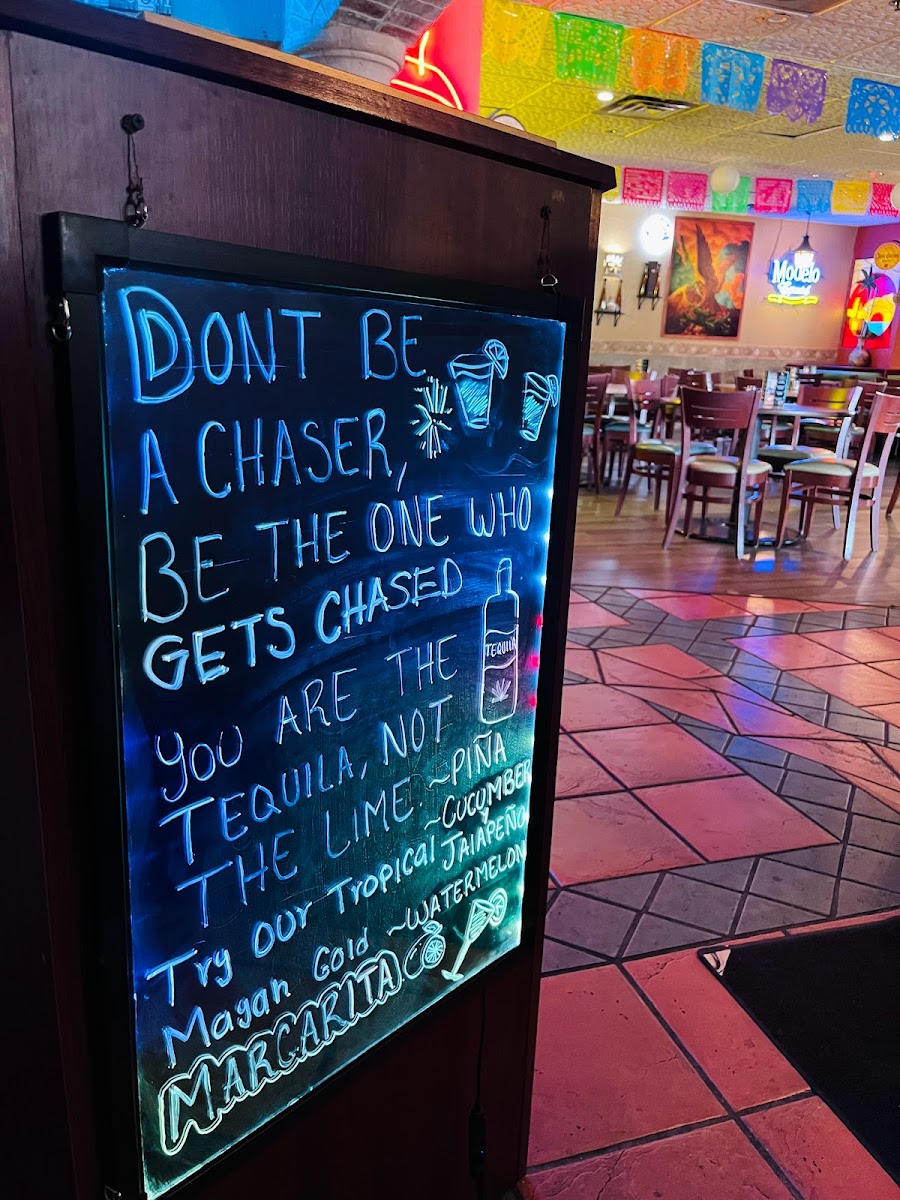 DONT BE
A CHASER,
BE THE ONE WHO
GETS CHASED
YOU ARE THE
TEQUILA, NOT
THE LIME.
TEQUILA
Try our Tropical
Mayan Gold
MARGARITA
~PIÑA
~CUCUMBER
JAlAPEÑO
~WATERMELON
Modelo
Especial